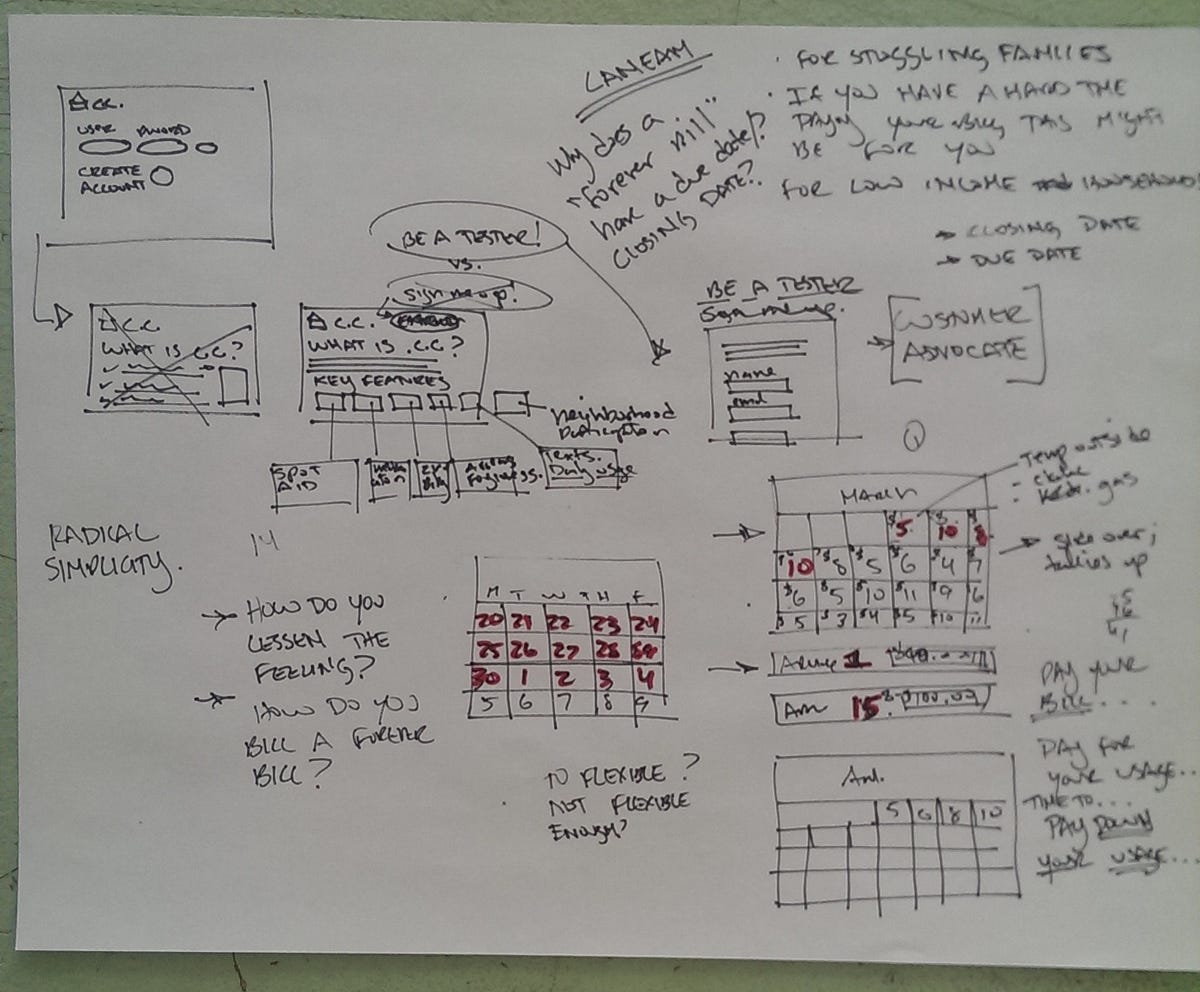 C.C.
USER PWORD
CREATE
ACCOUNT
LANEAM
Why does a
"forever bill"
have a due date/?
CLOSING DATE?.
· FOR STUGGLING FAMLIES
· IF YOU HAVE A HARD TME
PAYNG YOUR BILL THIS MIGHT
BE FOR YOU
FOR LOW INCOME HOUSEHOLDS
→ CLOSING DATE
→ DUE DATE
BE A TESTER!
VS.
Sign me up!
C.C.
WHAT IS C.C.?
C.C.
WHAT IS .C.C?
KEY FEATURES
neighborhood
SPOT
AID
Texts.
Daily usage
BE A TESTER
Sign me up.
name
email
CONSUMER
ADVOCATE
RADICAL
SIMPLICITY.
14
→ HOW DO YOU
LESSEN THE
FEELING?
→ HOW DO YOU
BILL A FOREVER
BILL?
M T W TH F
20 21 22 23 24
25 26 27 28
30 1 2 3 4
5 6 7 8 9
TO FLEXIBLE?
NOT FLEXIBLE
ENOUGH?
Temp outside
gas
MARCH
$5 $10 $8
$10 $8 $5 $6 $4 $7
$6 $5 $10 $11 $9 6
$5 $3 $4 $5 $10 11
over;
tallies up
1
15 $100.00
PAY YOUR
BILL....
PAY FOR
YOUR USAGE...
TIME TO...
PAY DOWN
YOUR USAGE...
5 6 8 10